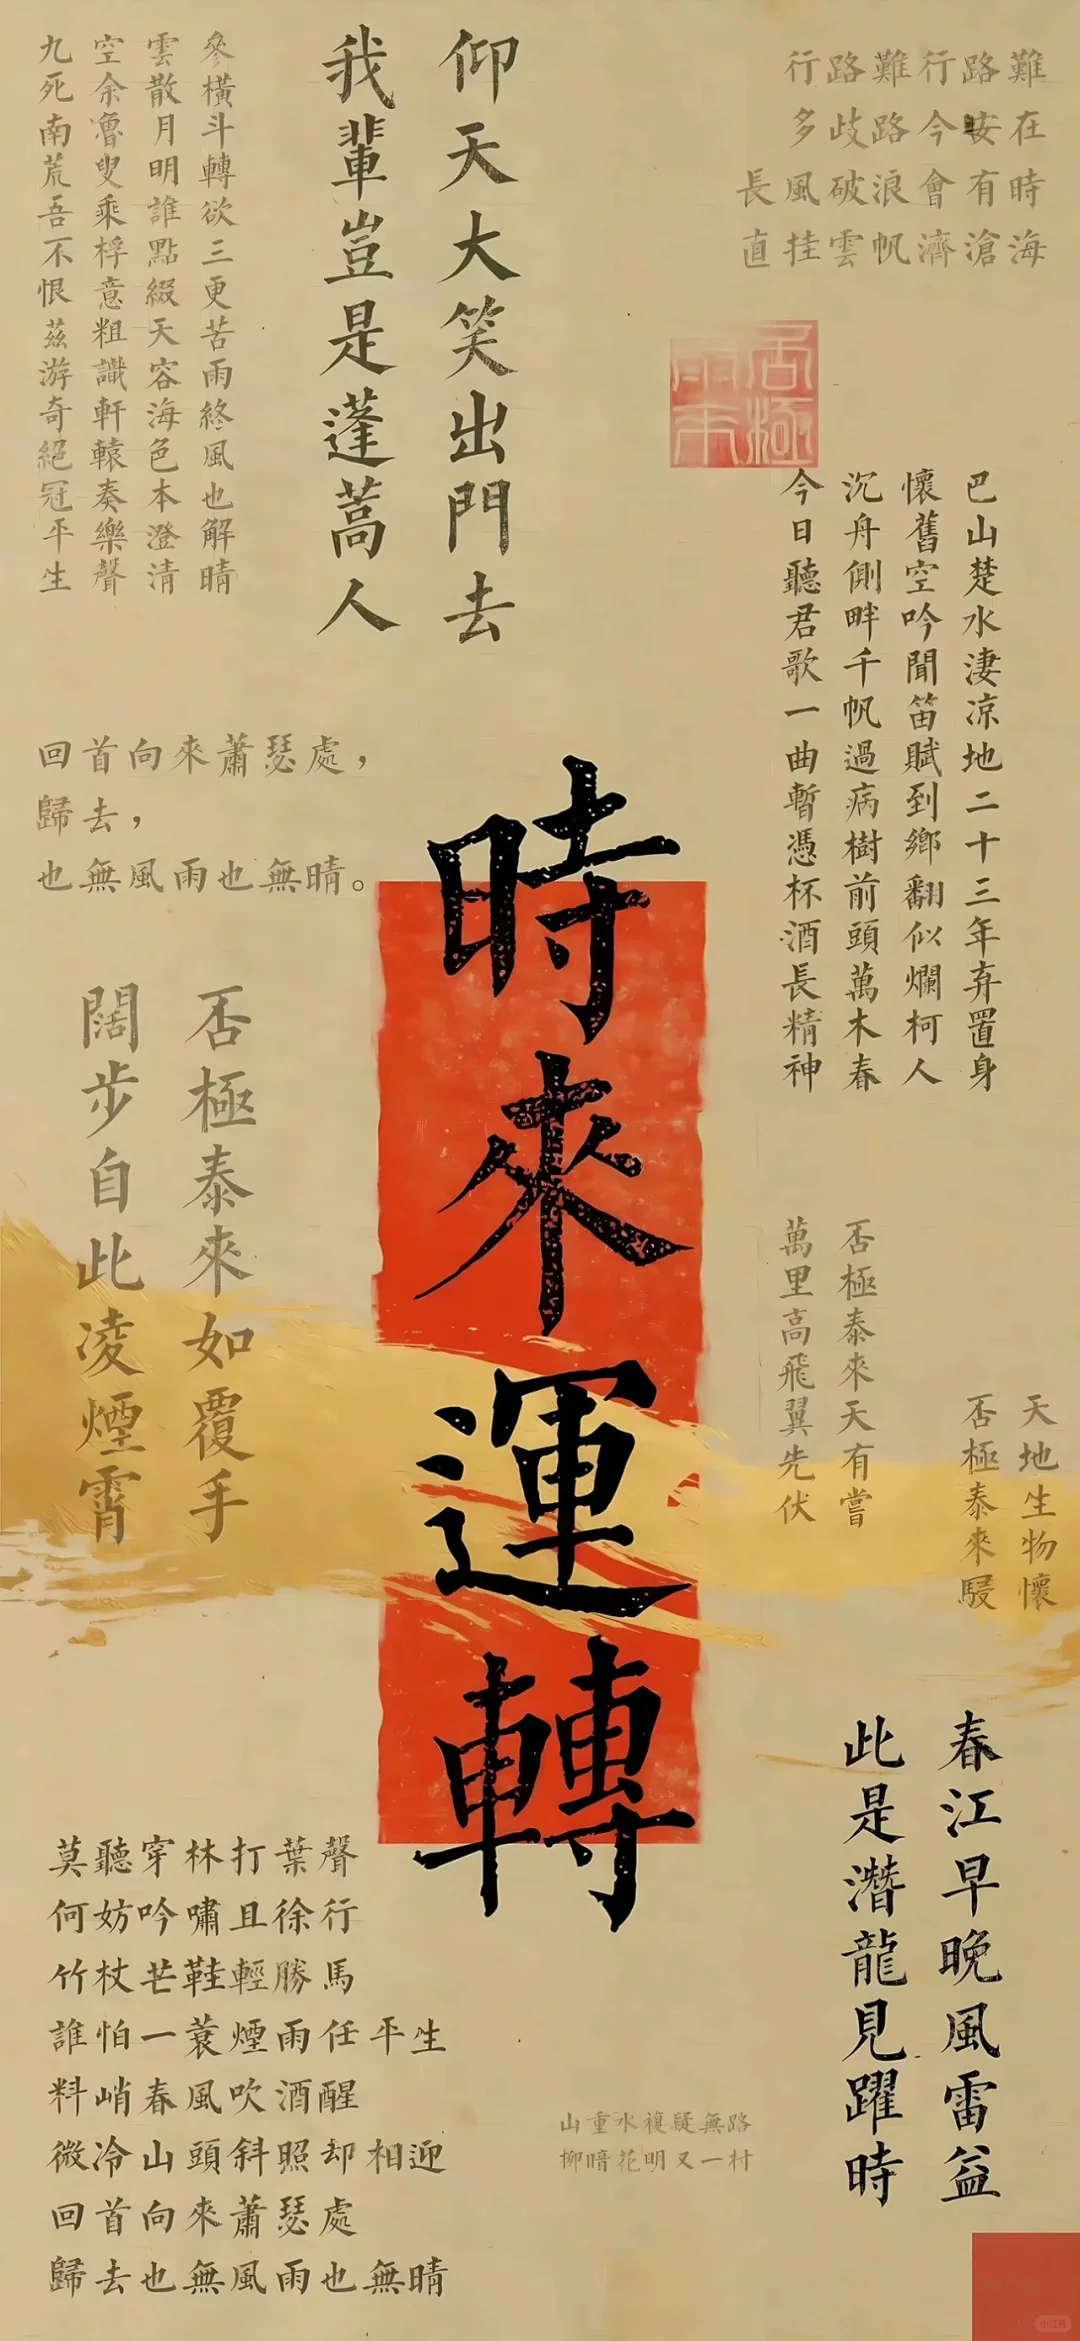 行路難行路難
多歧路今安在
長風破浪會有時
直挂雲帆濟滄海
仰天大笑出門去
我輩豈是蓬蒿人
參橫斗轉欲三更苦雨終風也解晴
雲散月明誰點綴天容海色本澄清
空余魯叟乘桴意粗識軒轅奏樂聲
九死南荒吾不恨茲游奇絕冠平生
巴山楚水淒凉地二十三年弃置身
懷舊空吟聞笛賦到鄉翻似爛柯人
沉舟側畔千帆過病樹前頭萬木春
今日聽君歌一曲暫憑杯酒長精神
回首向來蕭瑟處，
歸去，
也無風雨也無晴。
時來運轉
否極泰來如覆手
闊步自此凌煙霄
天地生物懷
否極泰來駸
否極泰來天有嘗
萬里高飛翼先伏
春江早晚風雷益
此是潛龍見躍時
莫聽穿林打葉聲
何妨吟嘯且徐行
竹杖芒鞋輕勝馬
誰怕一蓑煙雨任平生
料峭春風吹酒醒
微冷山頭斜照却相迎
回首向來蕭瑟處
歸去也無風雨也無晴
山重水複疑無路
柳暗花明又一村